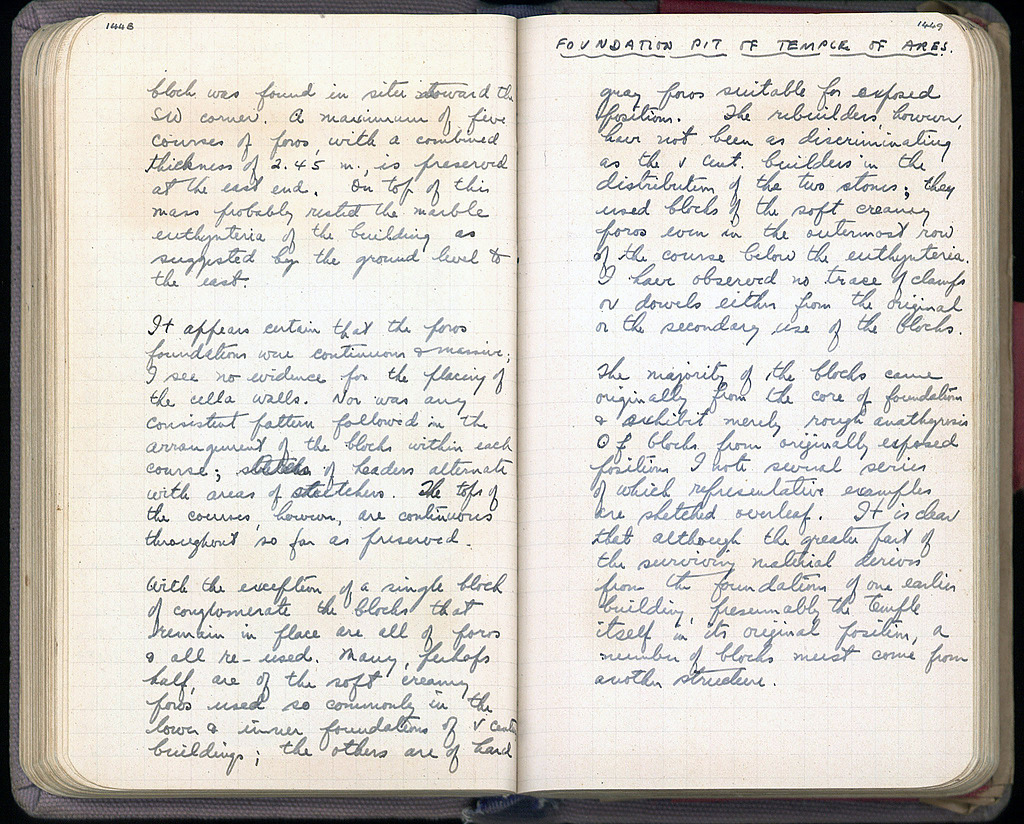 1448
block was found in situ toward the
SW corner. A maximum of five
courses of poros, with a combined
thickness of 2.45 m., is preserved
at the east end. On top of this
mass probably rested the marble
euthynteria of the building as
suggested by the ground level to
the east.
It appears certain that the poros
foundations were continuous & massive;
I see no evidence for the placing of
the cella walls. Nor was any
consistent pattern followed in the
arrangement of the blocks within each
course; stretches of headers alternate
with areas of stretchers. The tops of
the courses, however, are continuous
throughout so far as preserved.
With the exception of a single block
of conglomerate the blocks that
remain in place are all of poros
& all re-used. Many, perhaps
half, are of the soft creamy
poros used so commonly in the
lower & inner foundations of V century
buildings; the others are of hard
1449
FOUNDATION PIT OF TEMPLE OF ARES.
gray poros suitable for exposed
positions. The rebuilders, however,
have not been as discriminating
as the V cent. builders in the
distribution of the two stones; they
used blocks of the soft creamy
poros even in the outermost row
of the course below the euthynteria.
I have observed no trace of clamps
or dowels either from the original
or the secondary use of the blocks.
The majority of the blocks came
originally from the core of foundations
& exhibit merely rough anathyrosis
Of blocks from originally exposed
positions I note several series
of which representative examples
are sketched overleaf. It is clear
that although the greater part of
the surviving material derives
from the foundations of one earlier
building, presumably the temple
itself in its original position, a
number of blocks must come from
another structure.